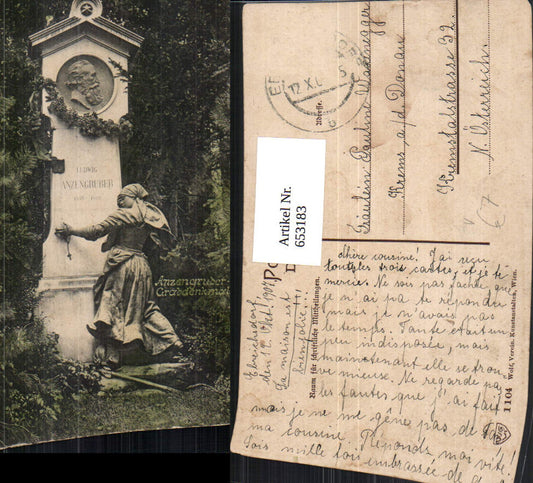 LUDWIG
ANZENGRUBER
1839-1889
Anzengruber
Grabdenkmal
Artikel Nr.
653183
12.X.
Adresse.
Fräulein Pauline
Krems a/d. Donau
Kremstalstrasse 32.
N. Österreich.
€7
Ebreichsdorf
den 12. Okt. 1907
La maison est
bien jolie!!!
Raum für schriftliche Mitteilungen.
Chère cousine! J'ai reçu
toutes les trois cartes, et je te
mercies. Ne sois pas fachée, que
je n'ai pa te répondu
mais je n'avais pas
le temps. Tante était un
peu indisposée, mais
maintenant elle se trou
ve mieuse. Ne regarde pas
les fautes que j'ai fait
mais je ne me gêne pas de
ma cousine. Réponds moi vite!
Sois mille fois embrassée de
1104 Wolf, Verein. Kunstanstalten, Wien.